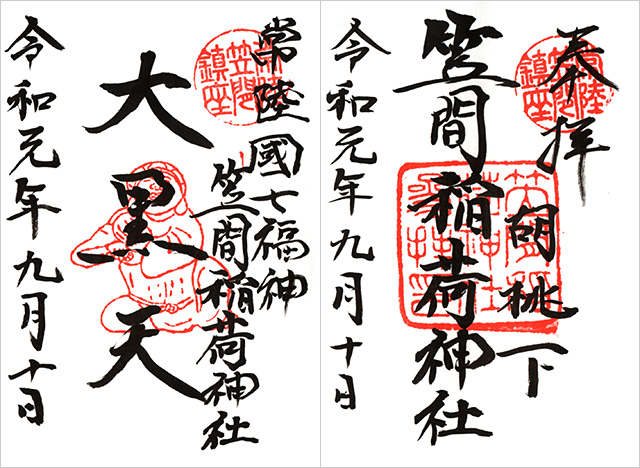 奉拝
胡桃下
笠間稲荷神社
令和元年九月十日
常陸國七福神
笠間稲荷神社
大黒天
令和元年九月十日
常陸
笠間
鎮座
常陸
笠間
鎮座